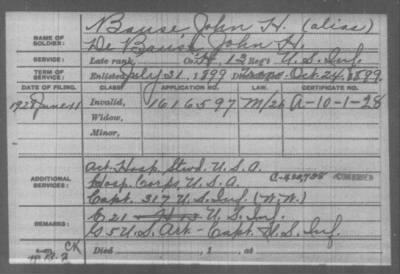 NAME OF SOLDIER: Bause John H. (alias)
De Baush, John H.
SERVICE: Late rank, Co. H, 12 Reg't U.S. Inf.
TERM OF SERVICE: Enlisted July 21, 1899 Oct. 24, 1899.
DATE OF FILING. CLASS. APPLICATION NO. LAW. CERTIFICATE NO.
1928 June 11 Invalid, 1616597 A-10-1-28
Widow,
Minor,
ADDITIONAL SERVICES: Act. Hosp. Stwd. U.S.A.
Hosp. Corps, U.S.A.
Capt. 317 U.S. Inf. (W.W.)
REMARKS: C 21 U.S. Inf.
G 5 U.S. Art - Capt. U.S. Inf.
CK
Died , 1 , at